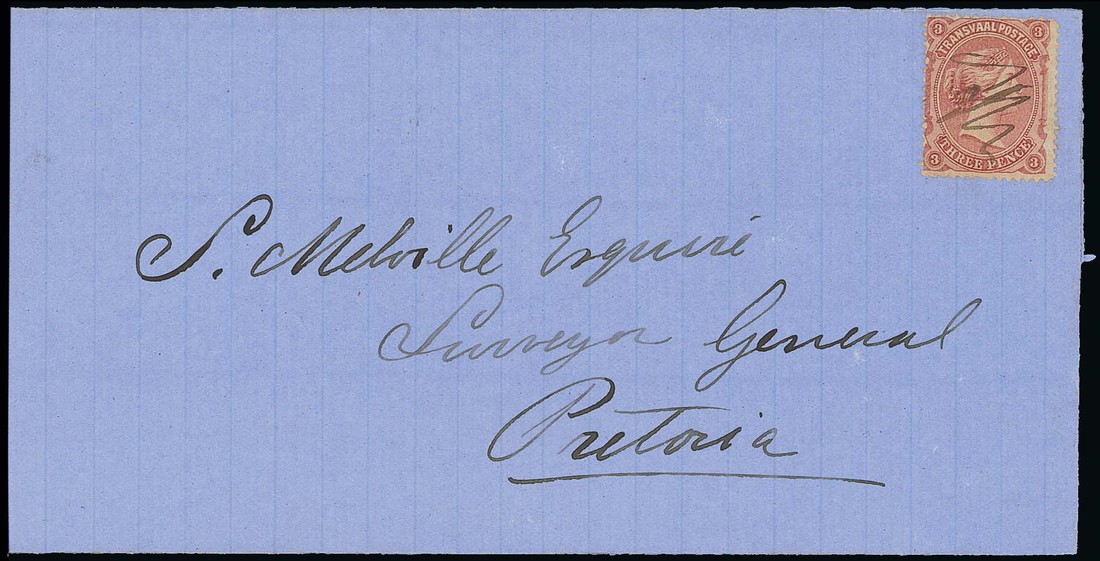 3 TRANSVAAL POSTAGE 3
3 THREE PENCE 3
S. Melville Esquire
Surveyor General
Pretoria